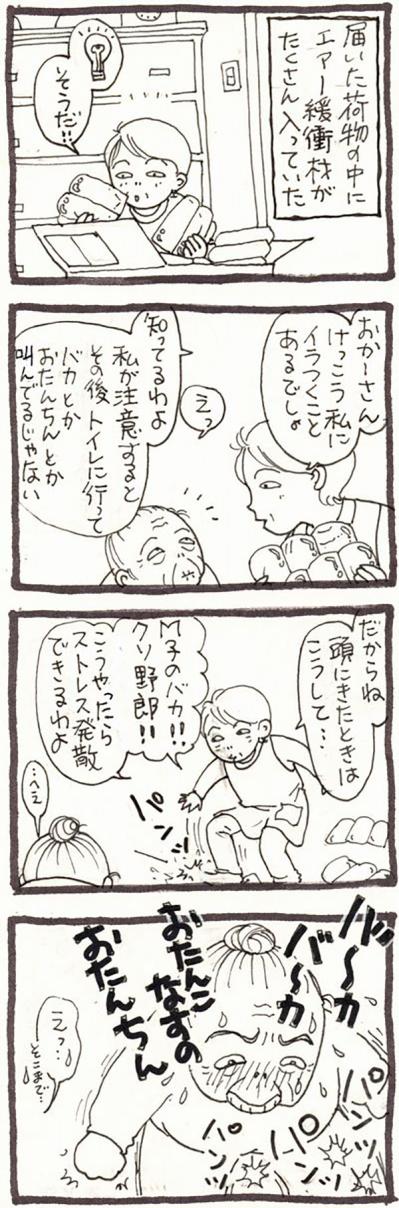 届いた荷物の中に
エアー緩衝材が
たくさん入っていた
そうだ!!
おかーさん
けっこう私に
イラつくこと
あるでしょ
えっ
知ってるわよ
私が注意すると
その後トイレに行って
バカとか
おたんちんとか
叫んでるじゃない
だからね
頭にきたときは
こうして…
M子のバカ!!
クソ野郎!!
こうやったら
ストレス発散
できるわよ
パンッ
…へえ
バ〜カ
バ〜カ
おたんこ
なすの
おたんちん
えっ…
そこまで…
パンッ
パンッ
パンッ
パンッ